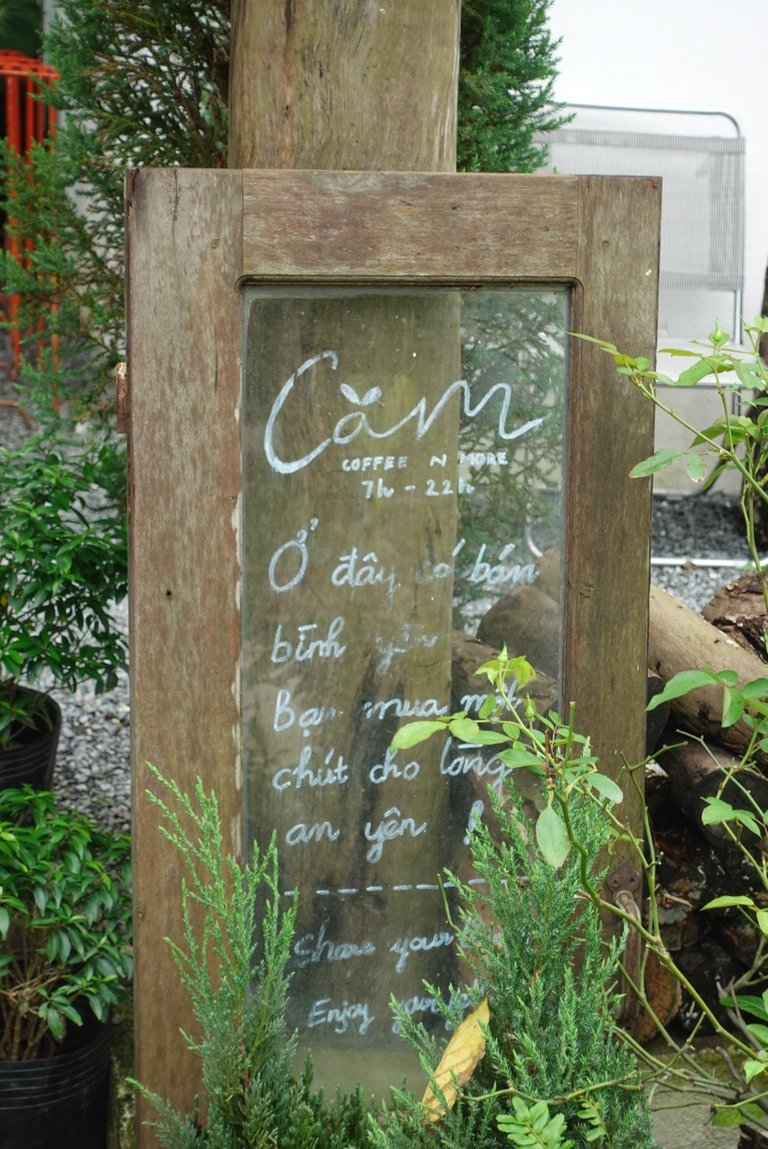 Cảm
COFFEE N MORE
7h - 22h
Ở đây có bán
bình yên
Bạn mua một
chút cho lòng
an yên !
Share your
Enjoy your